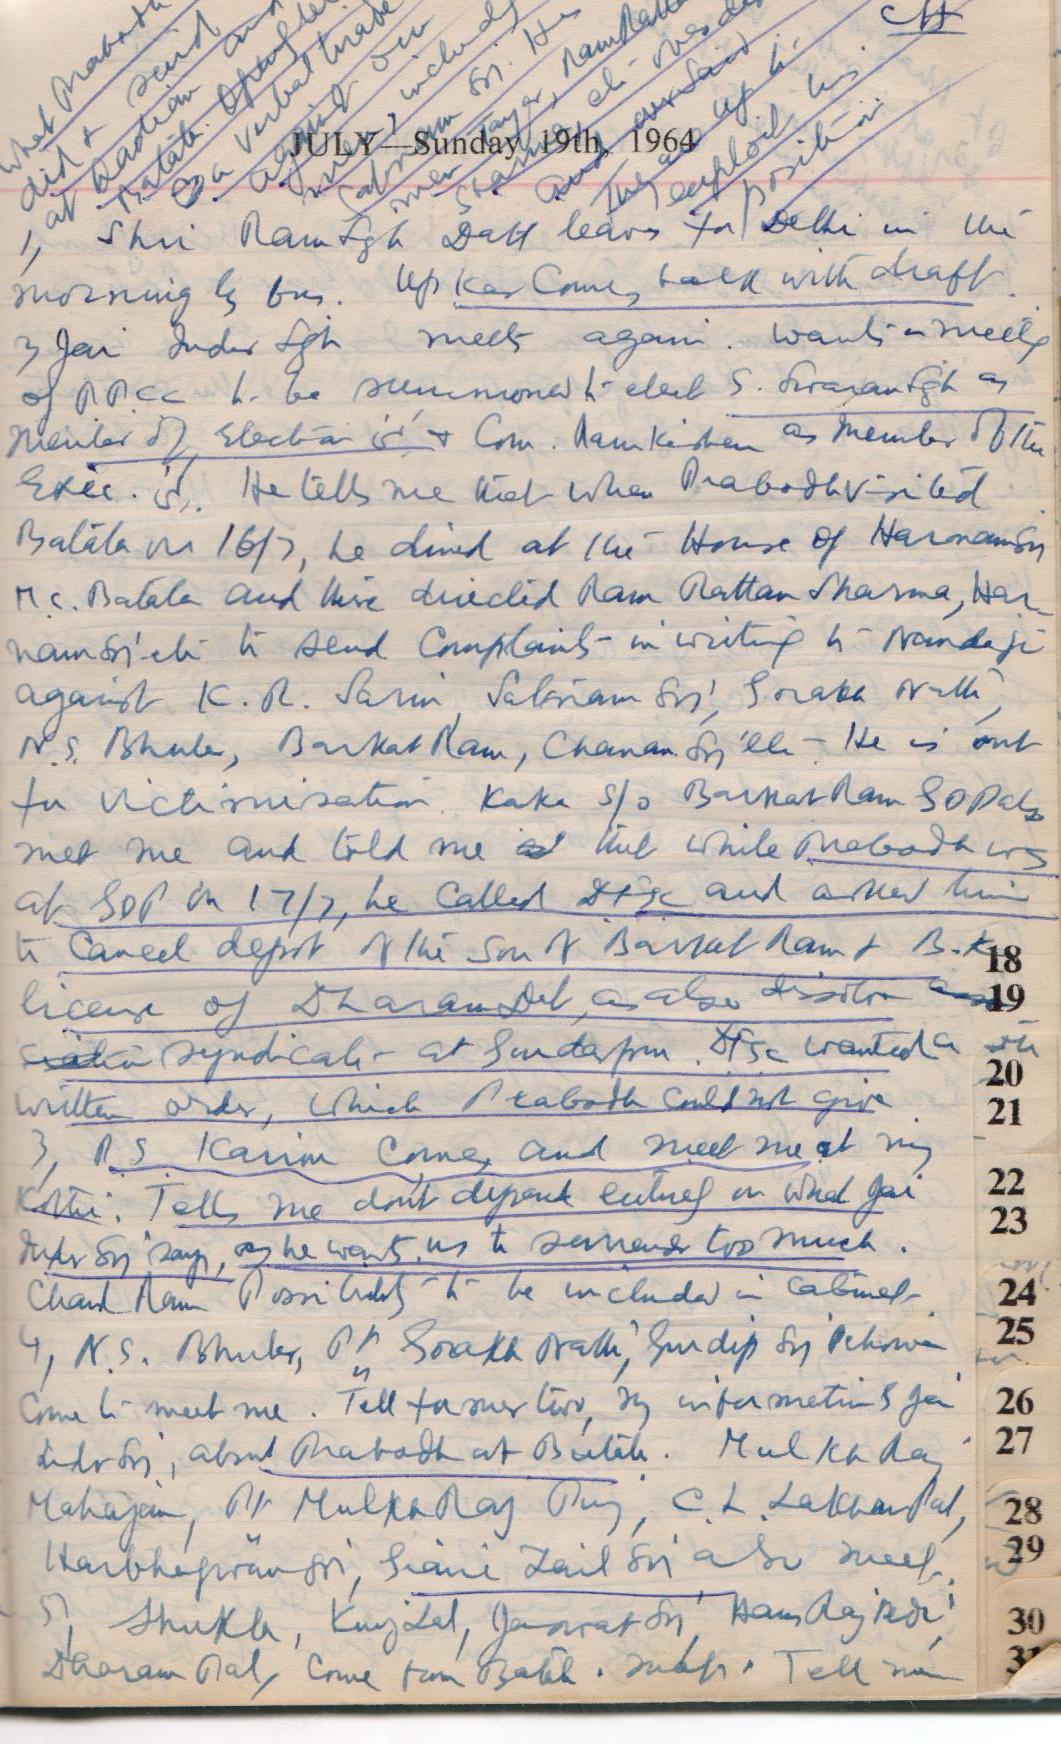 What Prabodh
did & said
at Dadian and
Batala.
verbal
against our
men including
Satnam Sri. He
Ram Rattan
Sharma etc.
and
They are up to
exploit his
position
JULY—Sunday, 19th, 1964
1, Shri Ram Sgh Datt leaves for Delhi in the
morning by bus. Upkar Comes back with draft.
2, Jai Inder Sgh meets again. Wants a meeting
of PPCC to be summoned to elect S. Swaran Sgh as
Member of Election & Com. Ram Kishan as Member of the
Exec. He tells me that when Prabodh visited
Batala on 16/7, he dined at the House of Harnam Sri
M.C. Batala and there directed Ram Rattan Sharma, Har-
nam Sri etc to send Complaints in writing to Nandaji
against K. R. Sarin, Satnam Sri, Gorakh Nath,
N.S. Bhuler, Barkat Ram, Chanan Sri etc. He is out
for victimisation. Kaka S/o Barkat Ram GDP also
met me and told me that while Prabodh was
at GDP on 17/7, he called DFSC and asked him
to Cancel depot of the son of Barkat Ram & B.K.
license of Dharam Dev, as also dissolve
syndicate at Gurdaspur. DFSC wanted a
written order, which Prabodh could not give.
3, P S Karim Comes and meet me at my
Kothi. Tells me don't depend entirely on what Jai
Inder Sri says, as he wants us to surrender too much.
Chand Ram Possibility to be included in Cabinet.
4, N.S. Bhuler, Pt Gorakh Nath, Gurdip Sri
Come to meet me. Tell former two, my information S Jai
Inder Sri, about Prabodh at Batala. Mulkh Raj
Mahajan, Pt Mulkh Raj Puri, C. L. Lakhan Pal,
Harbhagwan Sri, Giani Zail Sri also meet.
5, Shukla, Kunj Lal, Jaswat Sri, Hans Raj Bedi,
Dharam Pal, Come from Batala. Tell me
18
19
20
21
22
23
24
25
26
27
28
29
30
31